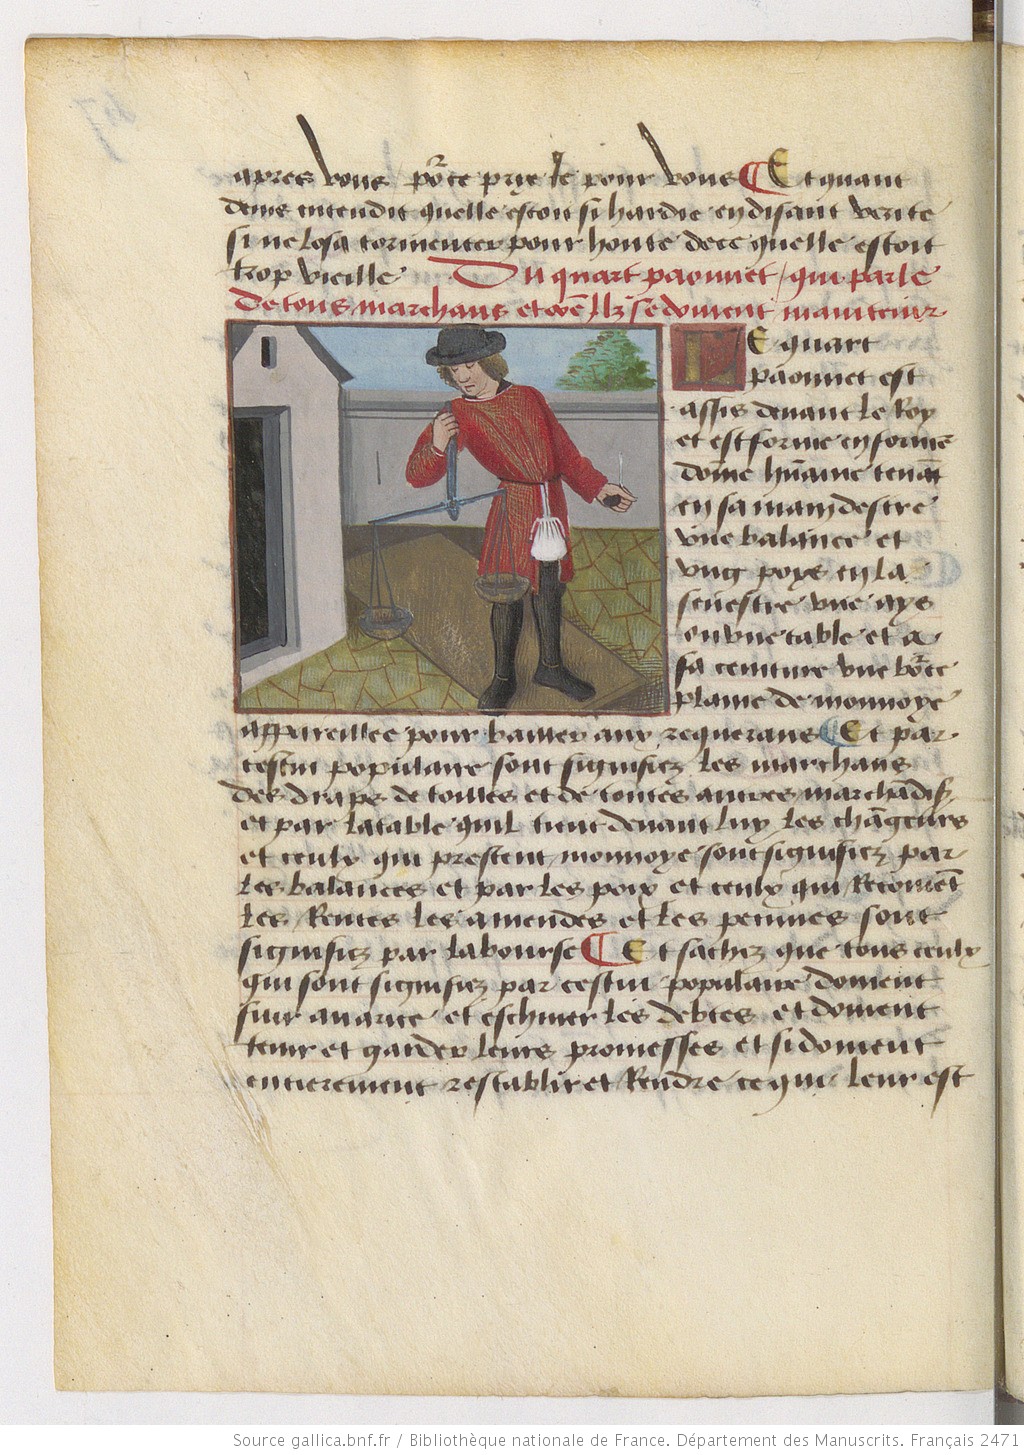 apres vous po^rce prye ie pour vous Et quant
denis entendit quelle estoit si hardie en disant verite
si ne losa tormenter pour honte de ce quelle estoit
trop vieille Du quart paonnet / qui parle
de tous marchans et ilz se doivent maintenir
Le quart
paonnet est
assis devant le Roy
et est forme en forme
dõme hũaine tenãt
en sa main destre
une balance et
ung poys en la
senestre une ays
ou une table et a
sa ceinture une bo^rce
plaine de monnoye
appareillee pour bailler aux requerans Et par
cestui populaire sont signifiez les marchans
des draps de toilles et de toutes autres marchãdis
et par la table quil tient devant luy les chãgeurs
et ceulx qui prestent monnoye sont signifiez par
les balances et par les poix et ceulx qui Recoivẽt
les Rentes les amendes et les peinnes sont
signifiez par la bourse Et sachiz que tous ceulx
qui sont signifiez par cestui populaire doivent
fuir avarice et eschiver les debtes et doivent
tenir et garder leurs promesses et si doivent
entierement restablir et Rendre ce qui leur est
Source gallica.bnf.fr / Bibliothèque nationale de France. Département des Manuscrits. Français 2471